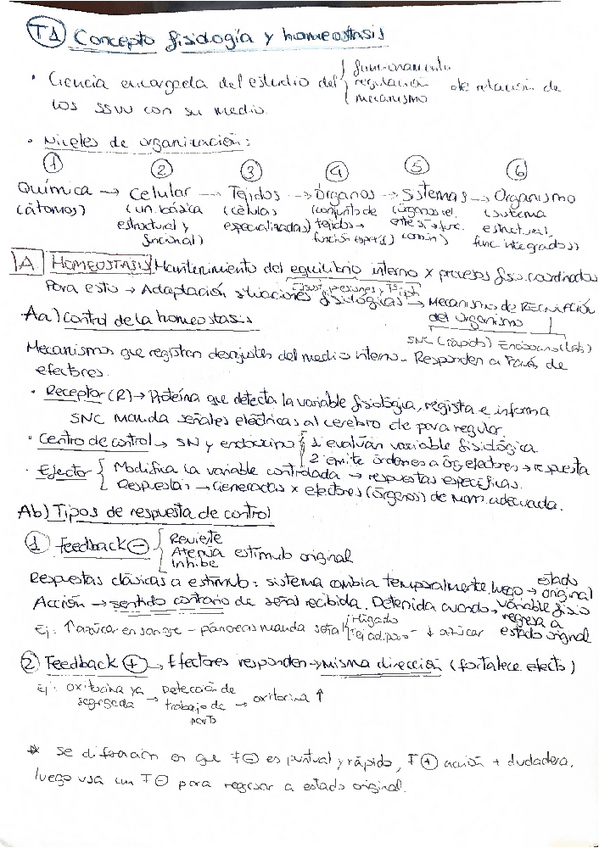 T1 Concepto fisiología y homeostasis
• Ciencia encargada del estudio del { funcionamiento
regulación
mecanismo
de relación de
los SSVV con su medio.
• Niveles de organización:
① ② ③ ④ ⑤ ⑥
Química → Celular → Tejidos → órganos → Sistemas → Organismo
(átomos) (un. básica estructural y funcional) (células especializadas) (conjunto de tejidos → función) (común) (sistema estructural, func integrados)
1A HOMEOSTASIS Mantenimiento del equilibrio interno x procesos fisio. coordinados
Para esto → Adaptación situaciones fisiológicas → Mecanismo de
del organismo
SNC (rápido) Endocrino (lento)
Aa) Control de la homeostasis
Mecanismos que registran desajustes del medio interno - Responden a través de
efectores.
• Receptor (R) → Proteína que detecta la variable fisiológica, registra e informa
SNC manda señales eléctricas al cerebro de para regular.
• Centro de control → SN y endocrino { 1 evalúan variable fisiológica
2 emite órdenes a órg efectores → respuesta
• Efector { Modifica la variable controlada → respuestas específicas.
Respuestas → Generadas x efectores (órganos) de adecuada.
Ab) Tipos de respuesta de control
① Feedback ⊖ { Revierte
Atenúa estímulo original
Inhibe
Respuestas clásicas a estímulo: sistema cambia temporalmente, luego → estado original
Acción → sentido contrario de señal recibida. Detenida cuando → variable fisio
regresa a
estado original
Ej: ↑ azúcar en sangre - páncreas manda señal { Hígado
- ↓ azúcar
② Feedback ⊕ → Efectores responden → misma dirección (fortalece efecto)
Ej: oxitocina ya segregada → Detección de trabajo de parto → oxitocina ↑
* Se diferencian en que F ⊖ es puntual y rápido, F ⊕ acción + duradera,
luego usa un F ⊖ para regresar a estado original.